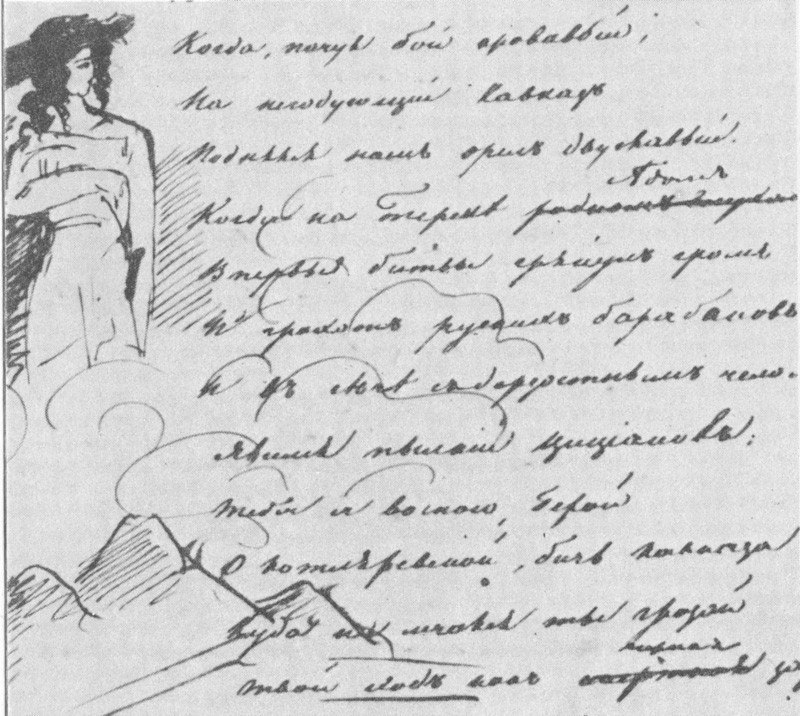 Когда, почуя бой кровавый,
На негодующий Кавказъ
Поднялся нашъ орелъ двуглавый.
сѣдомъ
Когда на Терекѣ
Впервые битвы грянулъ громъ
И грохотъ рускихъ барабановъ
И въ сѣчѣ съ дерзостнымъ чело-
Явился пылкій Циціановъ:
Тебя я воспою, Герой
О Котляревской, бичь Кавказа
Куда ни мчался ты грозой
черная
Твой ходъ какъ за